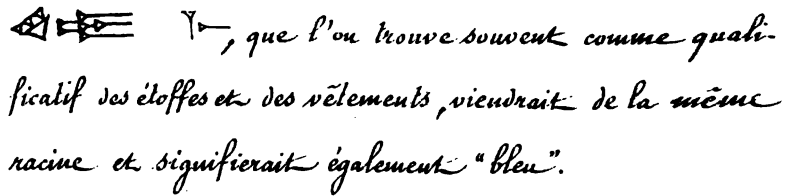 , que l'on trouve souvent comme quali-
ficatif des étoffes et des vêtements, viendrait de la même
racine et signifierait également "bleu".